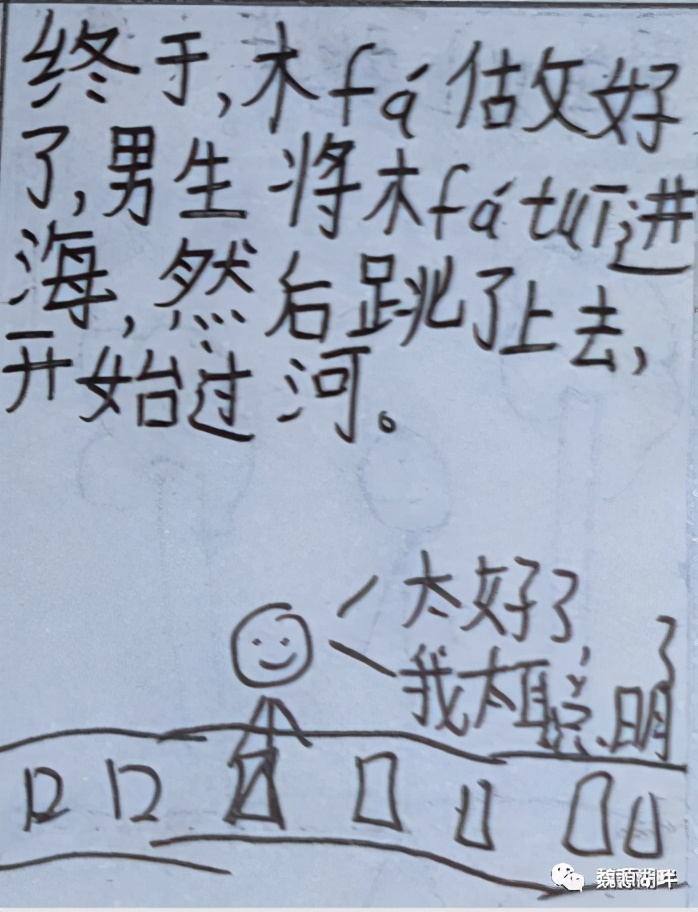 终于,木fá估攵好
了,男生将木fátuī进
海,然后跳了上去,
开始过河。
太好了,
我太聪明了
魏源湖畔